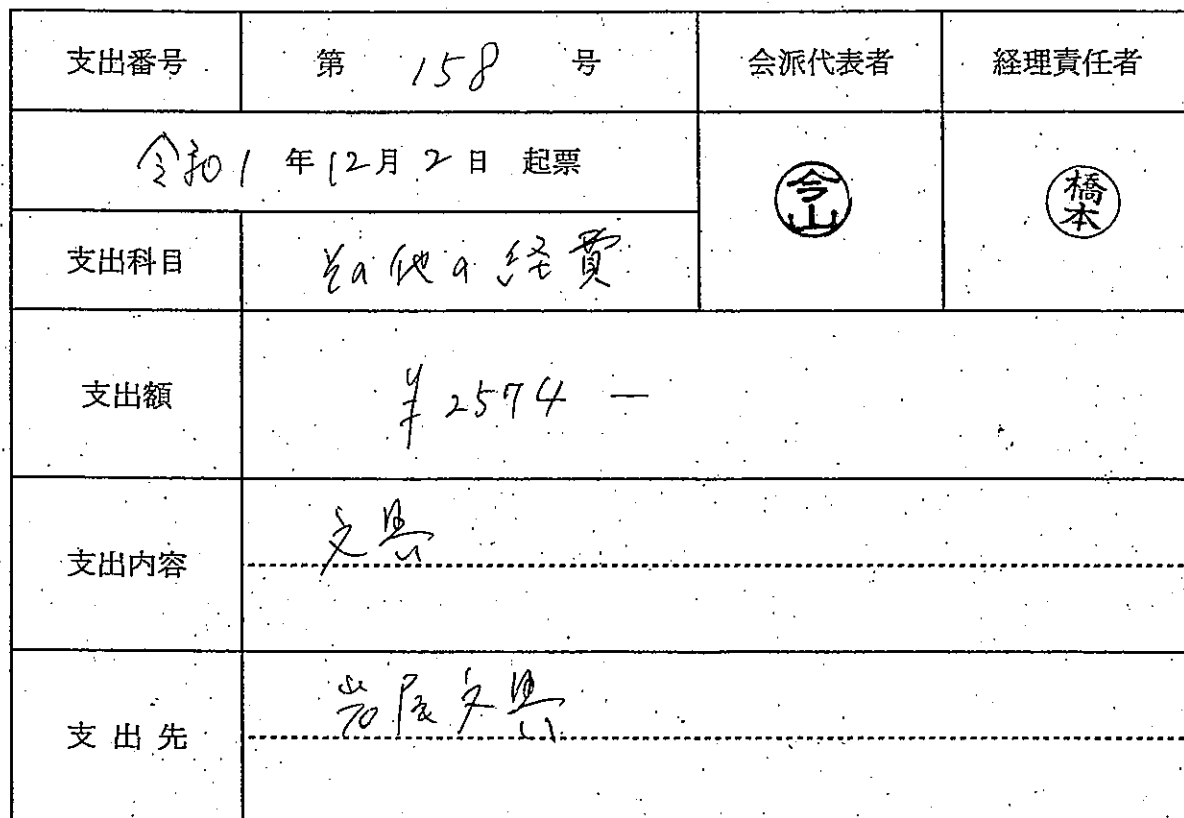 支出番号 第 158 号 会派代表者 経理責任者
令和1年12月2日 起票 今山 橋本
支出科目 その他の経費
支出額 ¥2574－
支出内容 文具
支出先 岩尾文具